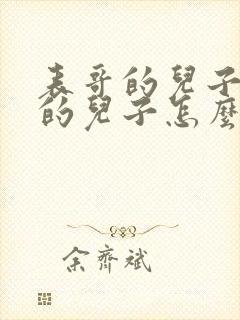 表哥的兒子
的兒子怎麼
余齊斌